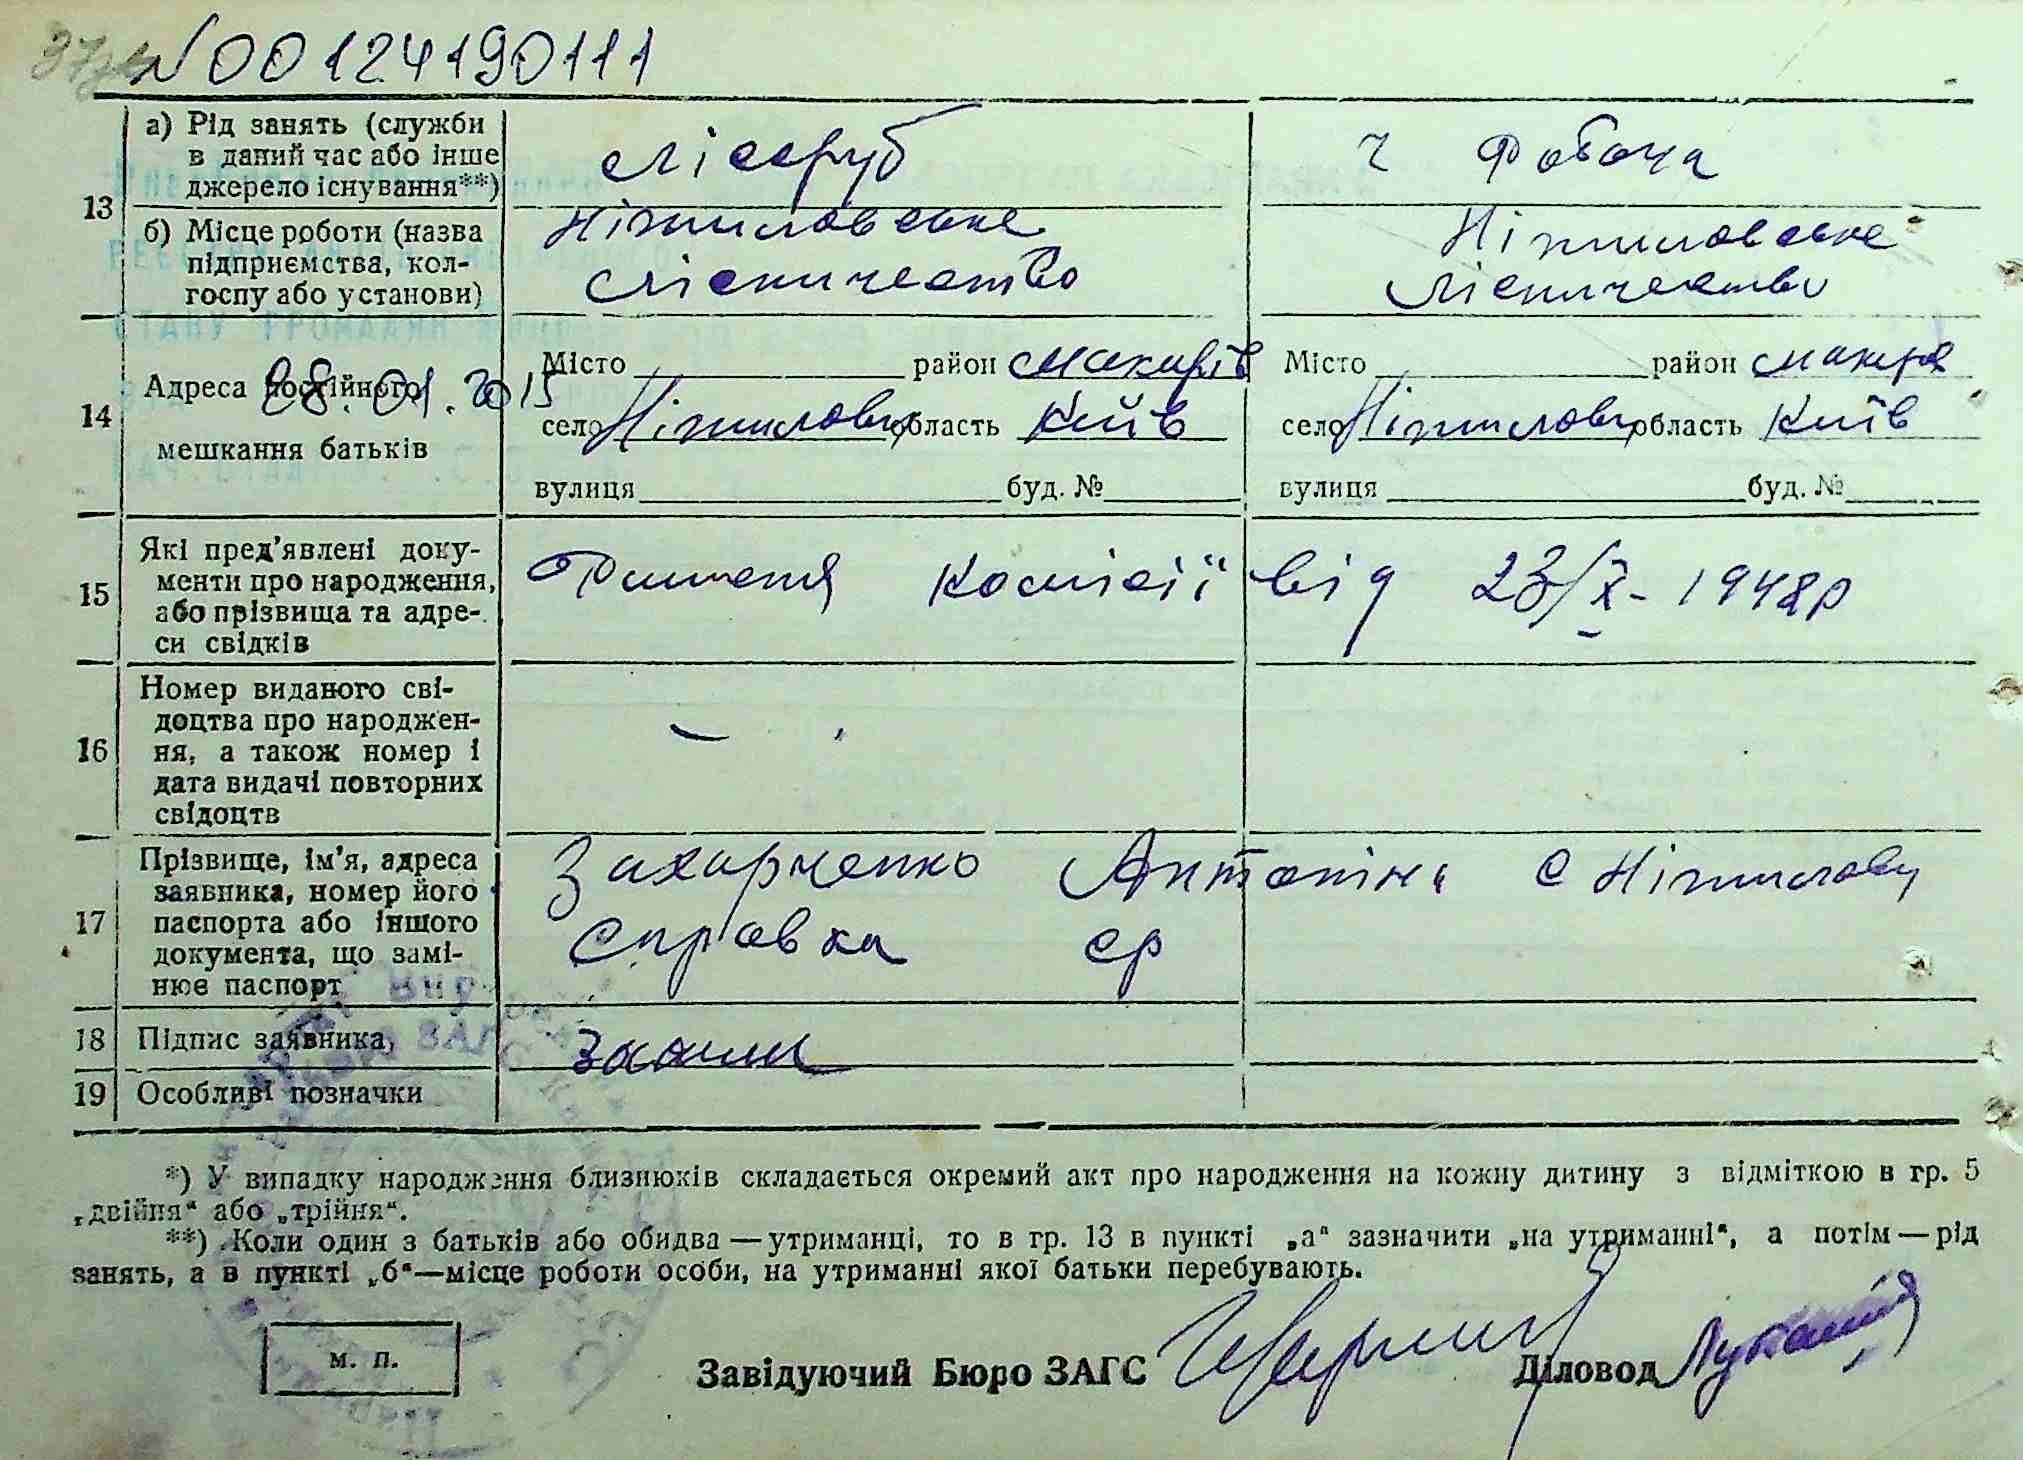 N00124190111
13
а) Рід занять (служби
в даний час або інше
джерело існування**)
лісоруб
ч Робоча
б) Місце роботи (назва
підприємства, кол-
госпу або установи)
Ніжиловське
Лісничество
Ніжиловське
Лісничество
14
Адреса постійного
мешкання батьків
28.01.2015
Місто район Макарів
село Ніжиловичі область Київ
вулиця буд. №
Місто район Макарів
село Ніжиловичі область Київ
вулиця буд. №
15
Які пред'явлені доку-
менти про народження,
або прізвища та адре-
си свідків
Рішення комісії від 23/X-1948р
16
Номер виданого сві-
доцтва про народжен-
ня, а також номер і
дата видачі повторних
свідоцтв
—
17
Прізвище, ім'я, адреса
заявника, номер його
паспорта або іншого
документа, що замі-
нює паспорт
Захарченко Антоніна с Ніжиловичі
Справка ср
18
Підпис заявника,
19
Особливі позначки
*) У випадку народження близнюків складається окремий акт про народження на кожну дитину з відміткою в гр. 5
„двійня“ або „трійня“.
**) Коли один з батьків або обидва — утриманці, то в гр. 13 в пункті „а“ зазначити „на утриманні“, а потім — рід
занять, а в пункті „б“—місце роботи особи, на утриманні якої батьки перебувають.
м. п.
Завідуючий Бюро ЗАГС
Діловод